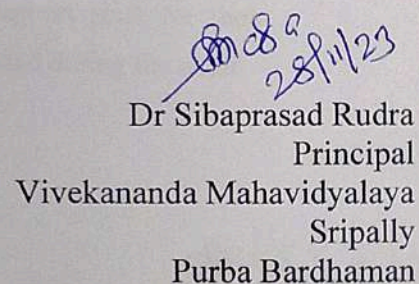 28/11/23
Dr Sibaprasad Rudra
Principal
Vivekananda Mahavidyalaya
Sripally
Purba Bardhaman